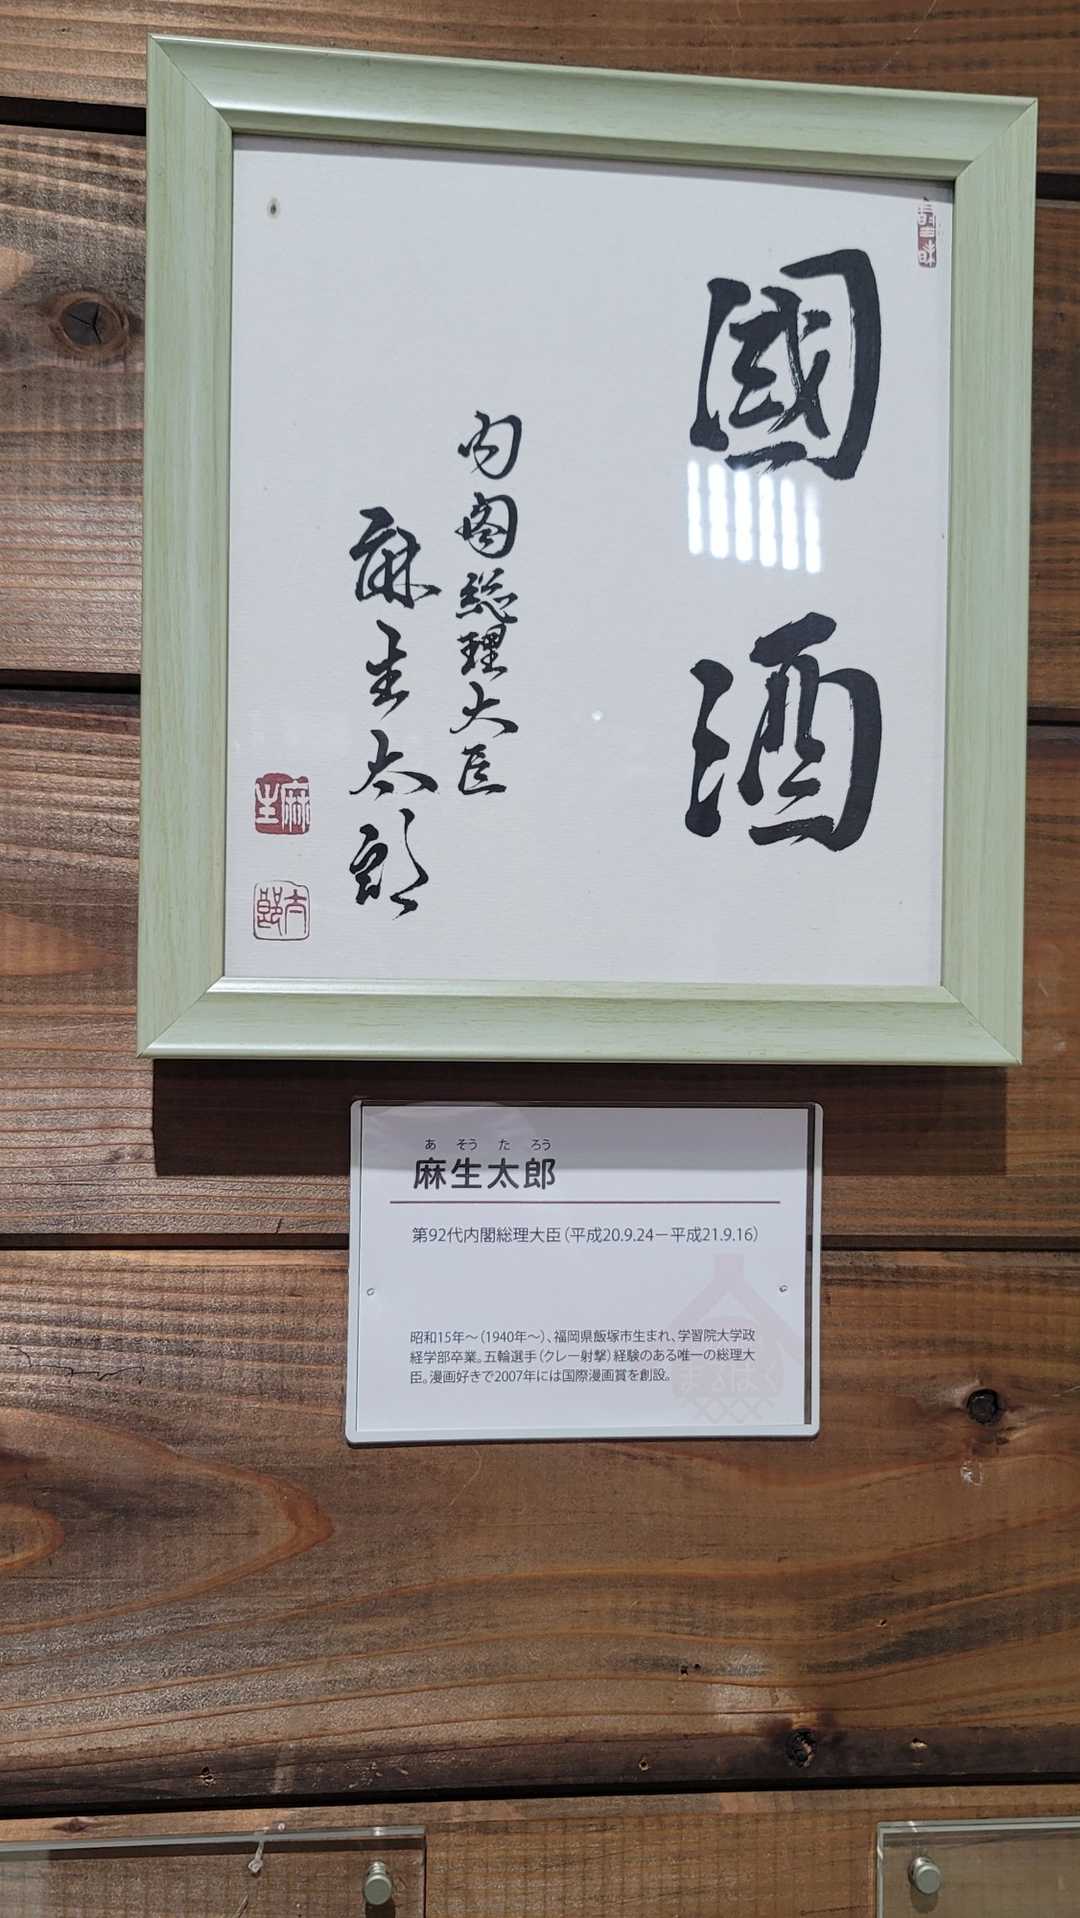 國酒
内閣総理大臣
麻生太郎
麻生
太郎
あ そう た ろう
麻生太郎
第92代内閣総理大臣（平成20.9.24－平成21.9.16）
昭和15年～（1940年～）、福岡県飯塚市生まれ、学習院大学政
経学部卒業。五輪選手（クレー射撃）経験のある唯一の総理大
臣。漫画好きで2007年には国際漫画賞を創設。